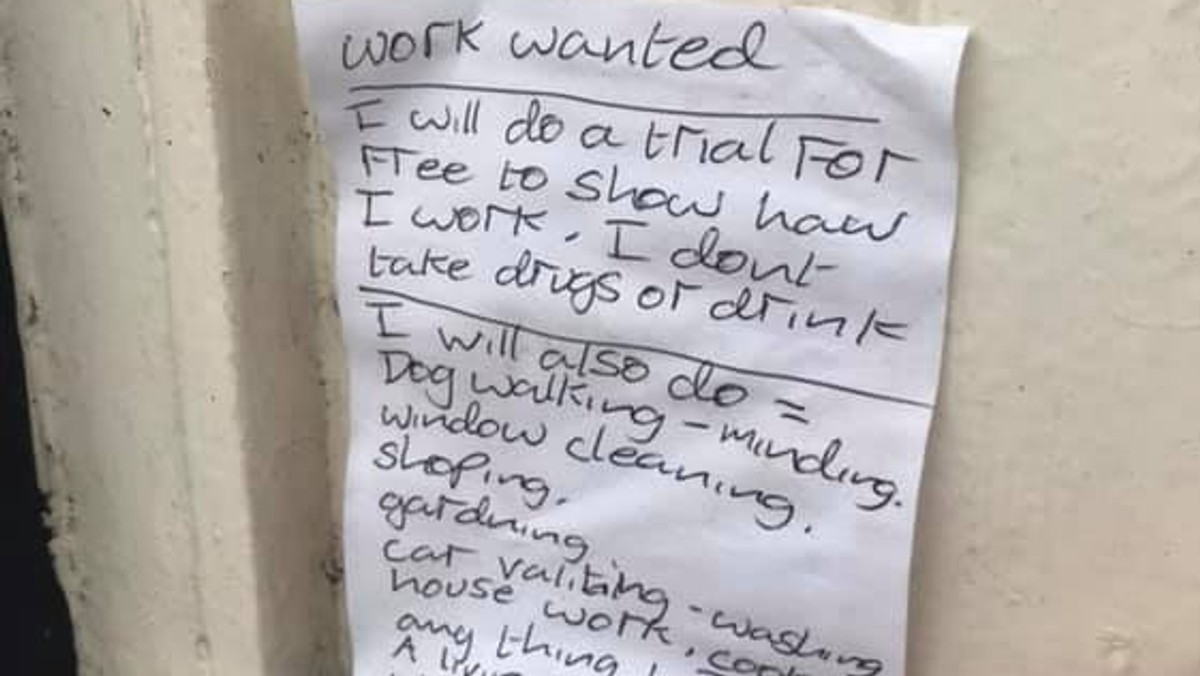 work wanted
I will do a trial For
Free to show how
I work. I dont
take drugs or drink
I will also do =
Dog walking - minding.
window cleaning.
shoping.
gardning
car valiting - washing
house work.
any thing
A